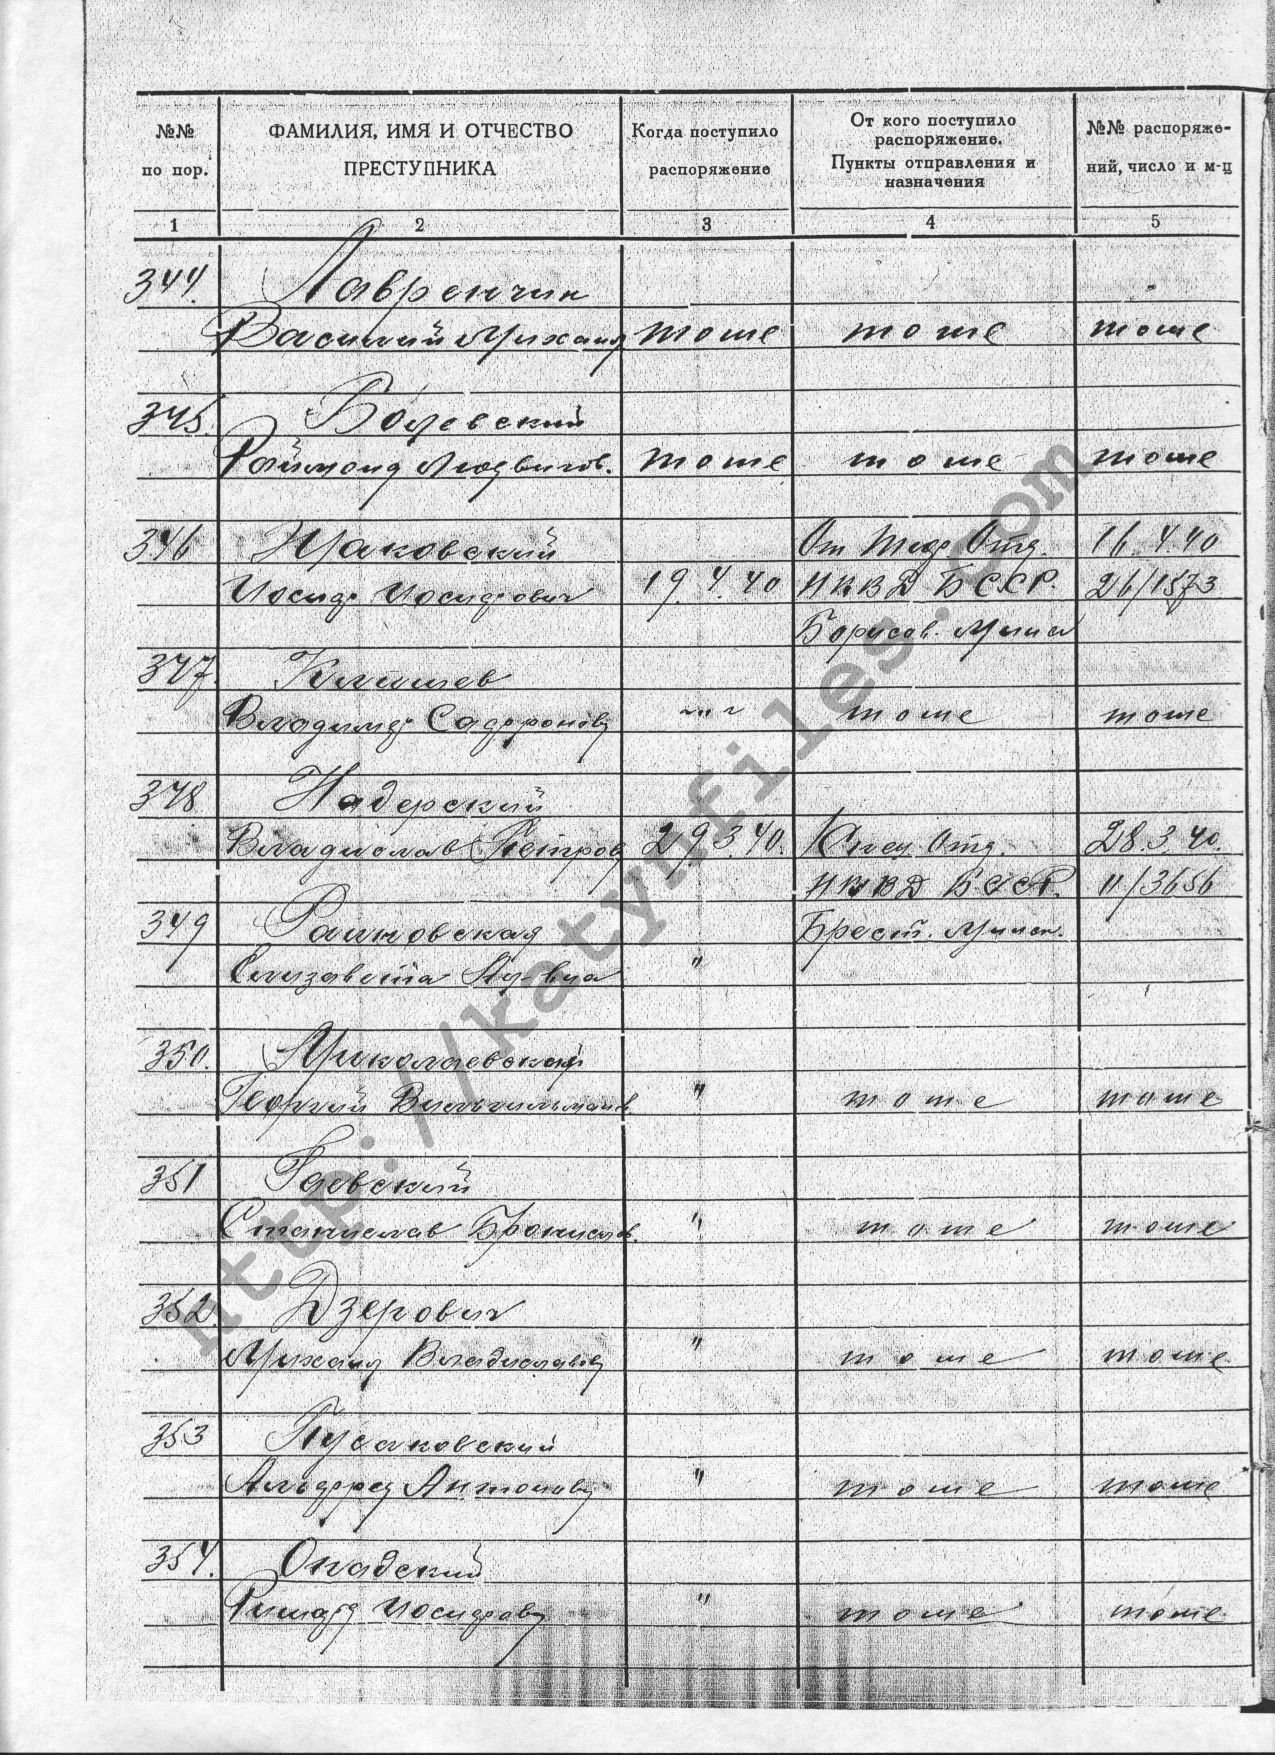 №№ по пор.
ФАМИЛИЯ, ИМЯ И ОТЧЕСТВО ПРЕСТУПНИКА
Когда поступило распоряжение
От кого поступило распоряжение. Пункты отправления и назначения
№№ распоряже-ний, число и м-ц
1 2 3 4 5
344. Лавренчик
Василий Михаил тоже тоже тоже
345. Волевский
Раймонд Людвигов. тоже тоже тоже
346 От Тюр. Отд. 16.4.40
Иосиф Иосифович 19.4.40 НКВД БССР. 26/1573
Борисов. Минск
347. Климев
Владимир Саффонов -"- тоже тоже
348 Надерский
Владислав Петров 29.3.40. Отд. 28.3.40.
НКВД БССР. 11/3656
349 Рашковская Брест. Минск.
Елизавета "
350. Миколаевский
Георгий Вильгельмов. " тоже тоже
351 Гаевский
Станислав Бронислов. " тоже тоже
352. Дзерович
Михаил Владиславов " тоже тоже
353 Пусаковский
Альфред Антонов " тоже тоже
354. Опадский
Ришард Иосифов " тоже тоже
http://katynfiles.com